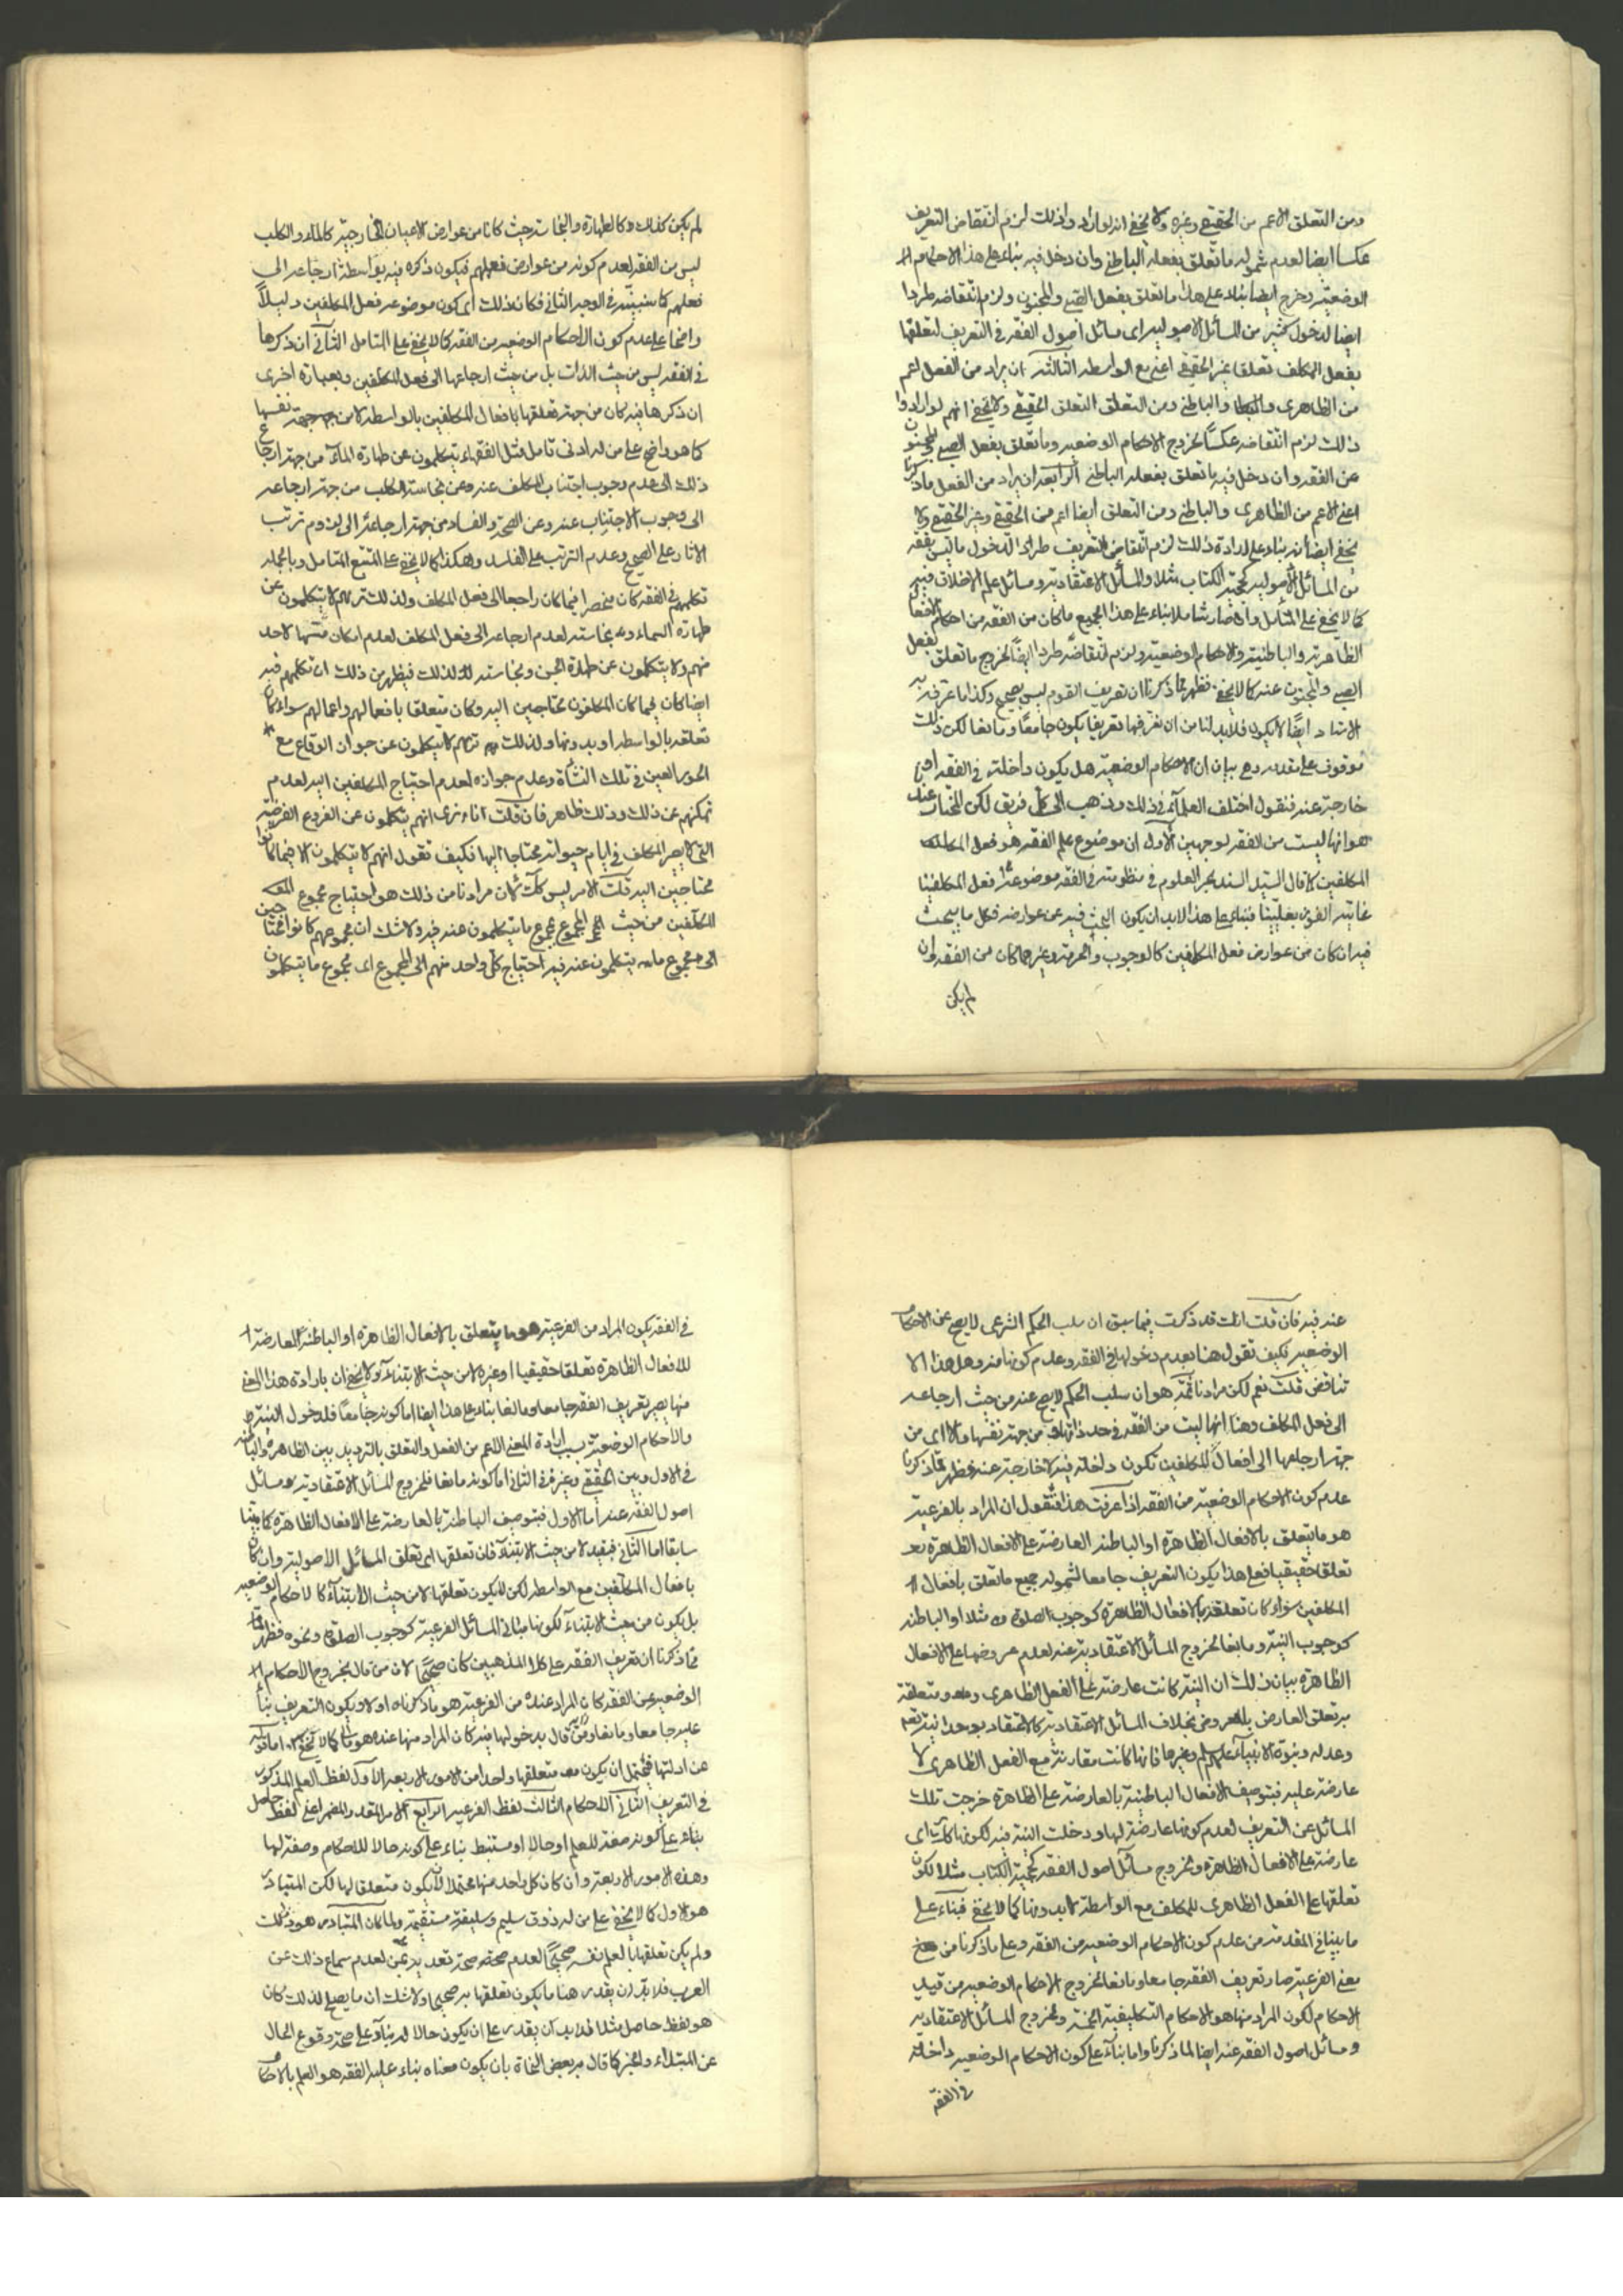 ومن التعلق الاعم من الحقيقي وغيره ولا يخفى انه لو اراد ذلك لزم انتقاض التعريف
عكسا ايضا لعدم شموله ما تعلق بفعله الباطني وان دخل فيه بناء على هذا الاحكام
الوضعية وخرج ايضا بناء على هذا ما تعلق بفعل الصبي والمجنون ولزم انتقاضه طردا
ايضا لدخول كثير من المسائل الاصولية اى مسائل اصول الفقه في التعريف لتعلقها
بفعل المكلف تعلقا غير الحقيقي اعني مع الواسطه الثالثه ان يراد من الفعل اعم
من الظاهرى والباطني ومن التعلق التعلق الحقيقي ولا يخفى انهم لو ارادوا
ذلك لزم انتقاضه عكسا لخروج الاحكام الوضعيه وما تعلق بفعل الصبي والمجنون
عن الفقه وان دخل فيه ما تعلق بفعله الباطني الرابعه ان يراد من الفعل ما ذكرنا
اعني الاعم من الظاهرى والباطني ومن التعلق ايضا اعم من الحقيقي وغير الحقيقي ولا
يخفى ايضا انه بناء على ارادة ذلك لزم انتقاض التعريف طردا لدخول ما ليس بفقه
من المسائل الاصوليه كحجية الكتاب مثلا والمسائل الاعتقاديه ومسائل علم الاخلاق فيه
كما لا يخفى على المتامل وان صار شاملا بناء على هذا الجميع ما كان من الفقه من احكام الافعال
الظاهرية والباطنية والاحكام الوضعية ولزم انتقاضه طردا ايضا لخروج ما تعلق بفعل
الصبي والمجنون عنه كما لا يخفى فظهر مما ذكرنا ان تعريف القوم ليس بصحيح وكذا ما عرفه به
الاستاد ايضا لا يكون فلا بد لنا من ان نعرفها تعريفا يكون جامعا ومانعا لكن ذلك
موقوف على مقدمه وهي بيان ان الاحكام الوضعية هل يكون داخلة في الفقه او
خارجة عنه فنقول اختلف العلماء في ذلك وذهب الى كل فريق لكن المختار عندى
هو انها ليست من الفقه لوجهين الاول ان موضوع علم الفقه هو فعل
المكلفين كما قال السيد السند بحر العلوم في منظومته في الفقه موضوعه فعل المكلفينا
غايته الفوز بعليينا فبناء على هذا لا بد ان يكون البحث فيه عن عوارضه فكل ما يبحث
فيه ان كان من عوارض فعل المكلفين كالوجوب والحرمة وغيرهما كان من الفقه وان
لم يكن
لم يكن كذلك وكالطهارة والنجاسة حيث كانا من عوارض الاعيان الخارجية كالماء والكلب
ليس من الفقه لعدم كونه من عوارض فعلهم فيكون ذكره فيه بواسطة ارجاعه الى
فعلهم كما سنبينه في الوجه الثاني فكان ذلك اى كون موضوعه فعل المكلفين دليلا
واضحا على عدم كون الاحكام الوضعيه من الفقه كما لا يخفى على المتامل الثاني ان ذكرها
في الفقه ليس من حيث الذات بل من حيث ارجاعها الى فعل المكلفين وبعبارة اخرى
ان ذكرها فيه كان من جهة تعلقها بافعال المكلفين بالواسطه لا من جهة نفسها
كما هو واضح على من له ادنى تامل مثل الفقهاء يتكلمون عن طهارة الماء من جهة ارجاع
ذلك الى عدم وجوب اجتناب المكلف عنه وعن نجاسة الكلب من جهة ارجاعه
الى وجوب الاجتناب عنه وعن الصحة والفساد من جهة ارجاعهما الى لزوم ترتب
الاثار على الصحيح وعدم الترتب على الفاسد وهكذا كما لا يخفى على المتتبع المتامل وبالجمله
تكلمهم في الفقه كان منحصرا فيما كان راجعا الى فعل المكلف ولذلك تريهم لا يتكلمون عن
طهارة السماء ونجاسته لعدم ارجاعه الى فعل المكلف لعدم امكان مسها لاحد
منهم ولا يتكلمون عن طهارة الجن ونجاسته كذلك فيظهر من ذلك ان تكلمهم فيه
ايضا كان فيما كان المكلفون محتاجين اليه وكان متعلقا بافعالهم واعمالهم سواء كان
تعلقه بالواسطه او بدونها ولذلك تريهم لا يتكلمون عن جواز الوقاع مع
الحور العين في تلك النشأة وعدم جوازه لعدم احتياج المكلفين اليه لعدم
تمكنهم عن ذلك وذلك ظاهر فان قلت انا نرى انهم يتكلمون عن الفروع الفرضية
التي لا يصير المكلف في ايام حيوته محتاجا اليها فكيف تقول انهم لا يتكلمون الا فيما كانوا
محتاجين اليه قلت الامر ليس كك لان مرادنا من ذلك هو احتياج مجموع
المكلفين من حيث المجموع مجموع ما يتكلمون عنه فيه ولا شك ان مجموعهم كانوا محتاجين
الى مجموع ما يتكلمون عنه فيه احتياج كل واحد منهم الى المجموع اى مجموع ما يتكلمون
عنه فيه فان قلت انك قد ذكرت فيما سبق ان سلب الحكم الشرعى لا يصح عن الاحكام
الوضعيه فكيف تقول هنا بعدم دخولها في الفقه وعدم كونها منه وهل هذا الا
تناقض قلت نعم لكن مرادنا ثمه هو ان سلب الحكم لا يصح عنه من حيث ارجاعه
الى فعل المكلف وهنا انها ليست من الفقه في حد ذاتها ومن جهة نفسها والا اى من
جهة ارجاعها الى افعال المكلفين تكون داخلة فيه لا خارجة عنه فظهر مما ذكرنا
عدم كون الاحكام الوضعية من الفقه اذا عرفت هذا فنقول ان المراد بالفرعية
هو ما يتعلق بالافعال الظاهرة او الباطنه العارضة على الافعال الظاهرة
تعلقا حقيقيا فعلى هذا يكون التعريف جامعا لشموله جميع ما تعلق بافعال
المكلفين سواء كان تعلقه بالافعال الظاهرة كوجوب الصلوة مثلا او الباطنه
كوجوب النية ومانعا لخروج المسائل الاعتقادية عنه لعدم عروضها على الافعال
الظاهرة بيان ذلك ان النية كانت عارضة على الفعل الظاهرى ومتعلقة
به تعلق العارض بالمعروض بخلاف المسائل الاعتقادية كالاعتقاد بوحدانيته تعالى
وعدله ونبوة الانبياء عليهم السلم وغيرها فانها كانت مقارنة مع الفعل الظاهرى لا
عارضة عليه فبتوصيف الافعال الباطنية بالعارضة على الظاهرة خرجت تلك
المسائل عن التعريف لعدم كونها عارضة لها ودخلت النية فيه لكونها كانت اى
عارضة على الافعال الظاهرة وبخروج مسائل اصول الفقه كحجية الكتاب مثلا لكون
تعلقها على الفعل الظاهرى للمكلف مع الواسطة لا بدونها كما لا يخفى فبناء على
ما بينا في المقدمة من عدم كون الاحكام الوضعيه من الفقه وعلى ما ذكرنا من
معنى الفرعية صار تعريف الفقه جامعا ومانعا لخروج الاحكام الوضعيه من قيد
الاحكام لكون المراد منها هو الاحكام التكليفية الخمسة وبخروج المسائل الاعتقاديه
ومسائل اصول الفقه عنه ايضا لما ذكرنا واما بناء على كون الاحكام الوضعيه داخلة
في الفقه
في الفقه يكون المراد من الفرعية هو ما يتعلق بالافعال الظاهرة او الباطنة العارضة
للافعال الظاهرة تعلقا حقيقيا او غيره لا من حيث الابتناء ولا يخفى ان بارادة هذا المعنى
منها يصير تعريف الفقه جامعا ومانعا بناء على هذا ايضا اما كونه جامعا فلدخول النية
والاحكام الوضعية بسبب ارادة المعنى الاعم من الفعل والتعلق بالترديد بين الظاهرة والباطنة
في الاول وبين الحقيقي وغيره في الثاني اما كونه مانعا فلخروج المسائل الاعتقادية ومسائل
اصول الفقه عنه اما الاول فبتوصيف الباطنة بالعارضة على الافعال الظاهرة كما بينا
سابقا اما الثاني فبقيد لا من حيث الابتناء فان تعلقها اى تعلق المسائل الاصولية وان كان
بافعال المكلفين مع الواسطه لكن لا يكون تعلقها لا من حيث الابتناء كالاحكام الوضعيه
بل يكون من حيث الابتناء لكونها مبانى المسائل الفرعية كوجوب الصلوة ونحوه فظهر
مما ذكرنا ان تعريف الفقه على كلا المذهبين كان صحيحا لان من قال بخروج الاحكام
الوضعيه عن الفقه كان المراد عنده من الفرعية هو ما ذكرناه اولا ويكون التعريف بناء
عليه جامعا ومانعا ومن قال بدخولها فيه كان المراد منها عنده هو الثانى كما لا يخفى اما قوله
عن ادلتها فيحتمل ان يكون متعلقها واحدا من الامور الاربعه الاول لفظ العلم المذكور
في التعريف الثاني الاحكام الثالث لفظ الفرعيه الرابع الامر المقدر والمضمر اعني لفظ حاصل
بناء على كونه صفة للعلم او حالا او مستنبط بناء على كونه حالا للاحكام وصفة لها
وهذه الامور الاربعة وان كان كل واحد منها محتملا لان يكون متعلقا لها لكن المتبادر
هو الاول كما لا يخفى على من له ذوق سليم وسليقة مستقيمة ولما كان المتبادر هو ذلك
ولم يكن تعلقها بالعلم نفسه صحيحا لعدم صحة تعديه بعن لعدم سماع ذلك عن
العرب فلا بد ان يقدر هنا ما يكون تعلقها به صحيحا ولا شك ان ما يصح لذلك كان
هو لفظ حاصل مثلا فلا بد ان يقدر على ان يكون حالا له بناء على صحة وقوع الحال
عن المبتداء والخبر كما قال به بعض النحاة بان يكون معناه بناء عليه الفقه هو العلم بالاحكام